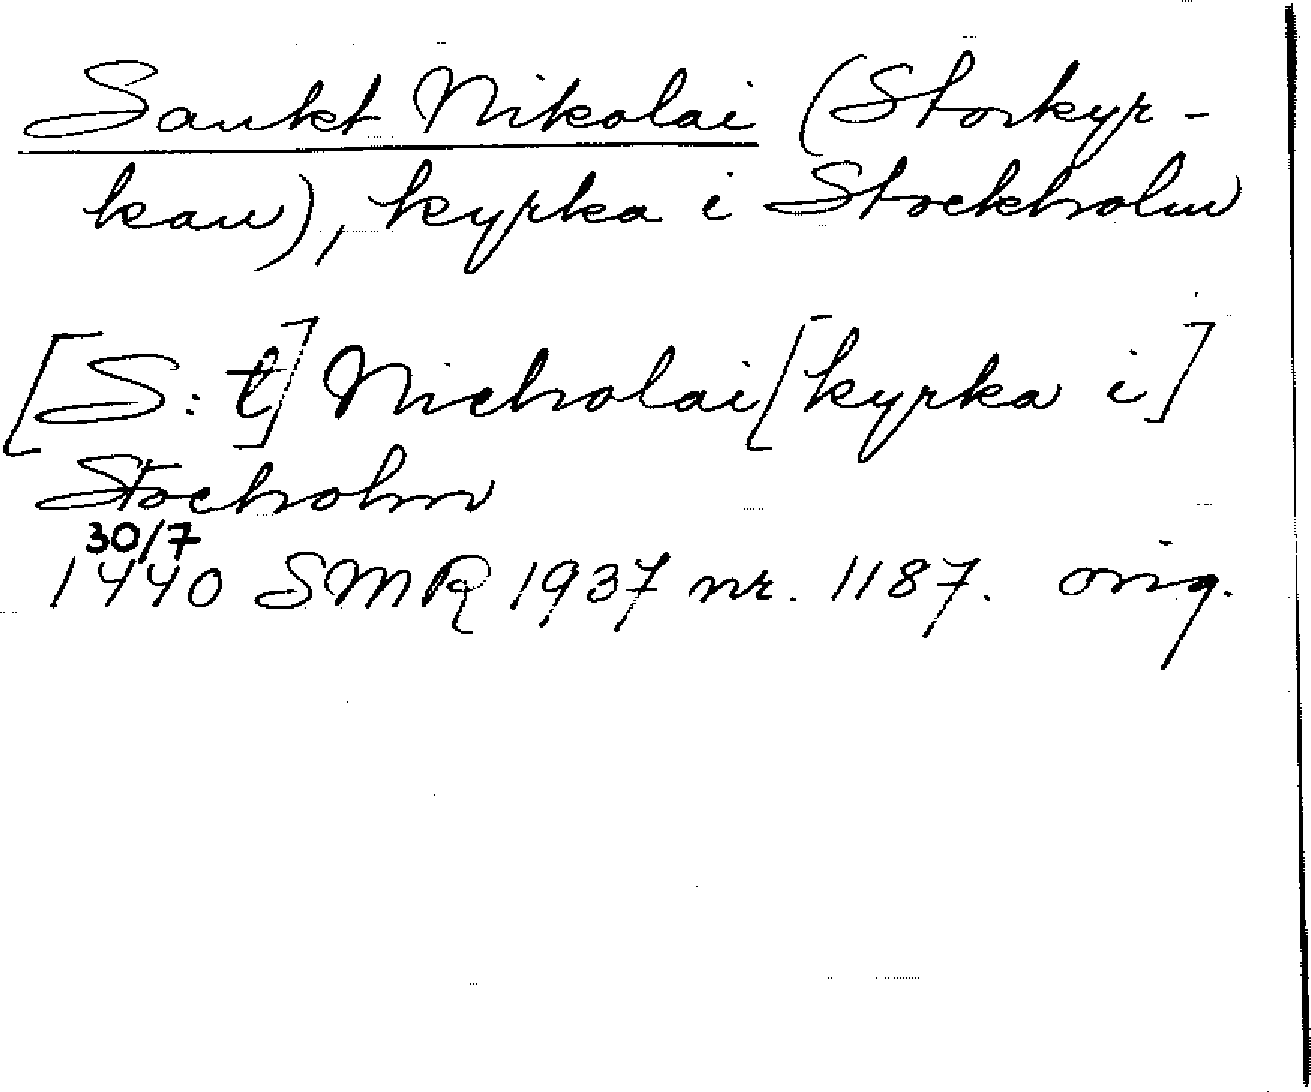 Sankt Nikolai (Storkyr-
kan), kyrka i Stockholm
[S:t] Nicholai [kyrka i]
Stocholm
30/7
1440 SMR 1937 nr. 1187. orig.